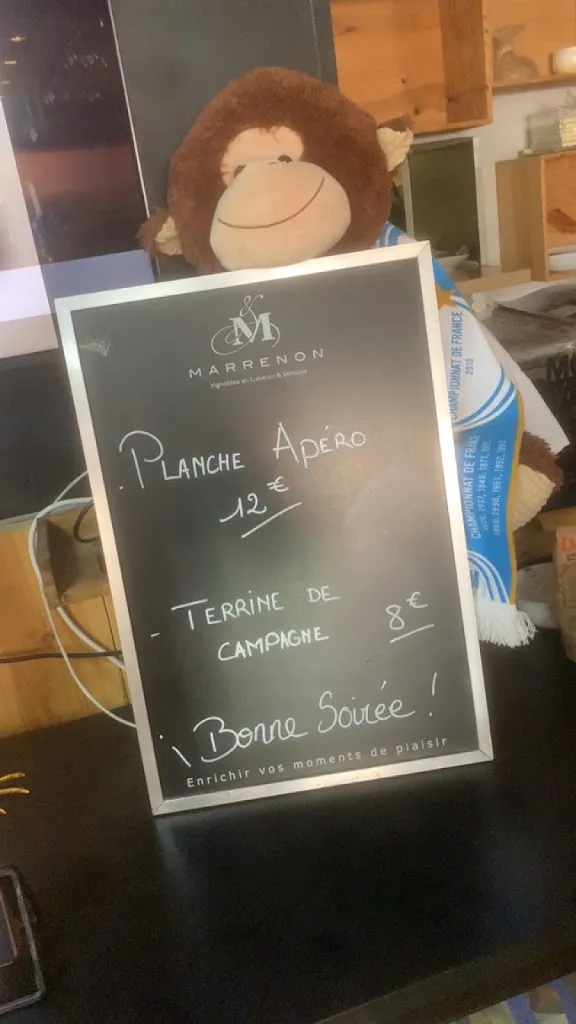 & M
MARRENON
Vignobles en Luberon & Ventoux
. PLANCHE APÉRO
12 €
- TERRINE DE
CAMPAGNE 8 €
¡ Bonne Soirée !
Enrichir vos moments de plaisir
CHAMPIONNAT DE FRANCE
2010
CHAMPIONNAT DE FRANCE